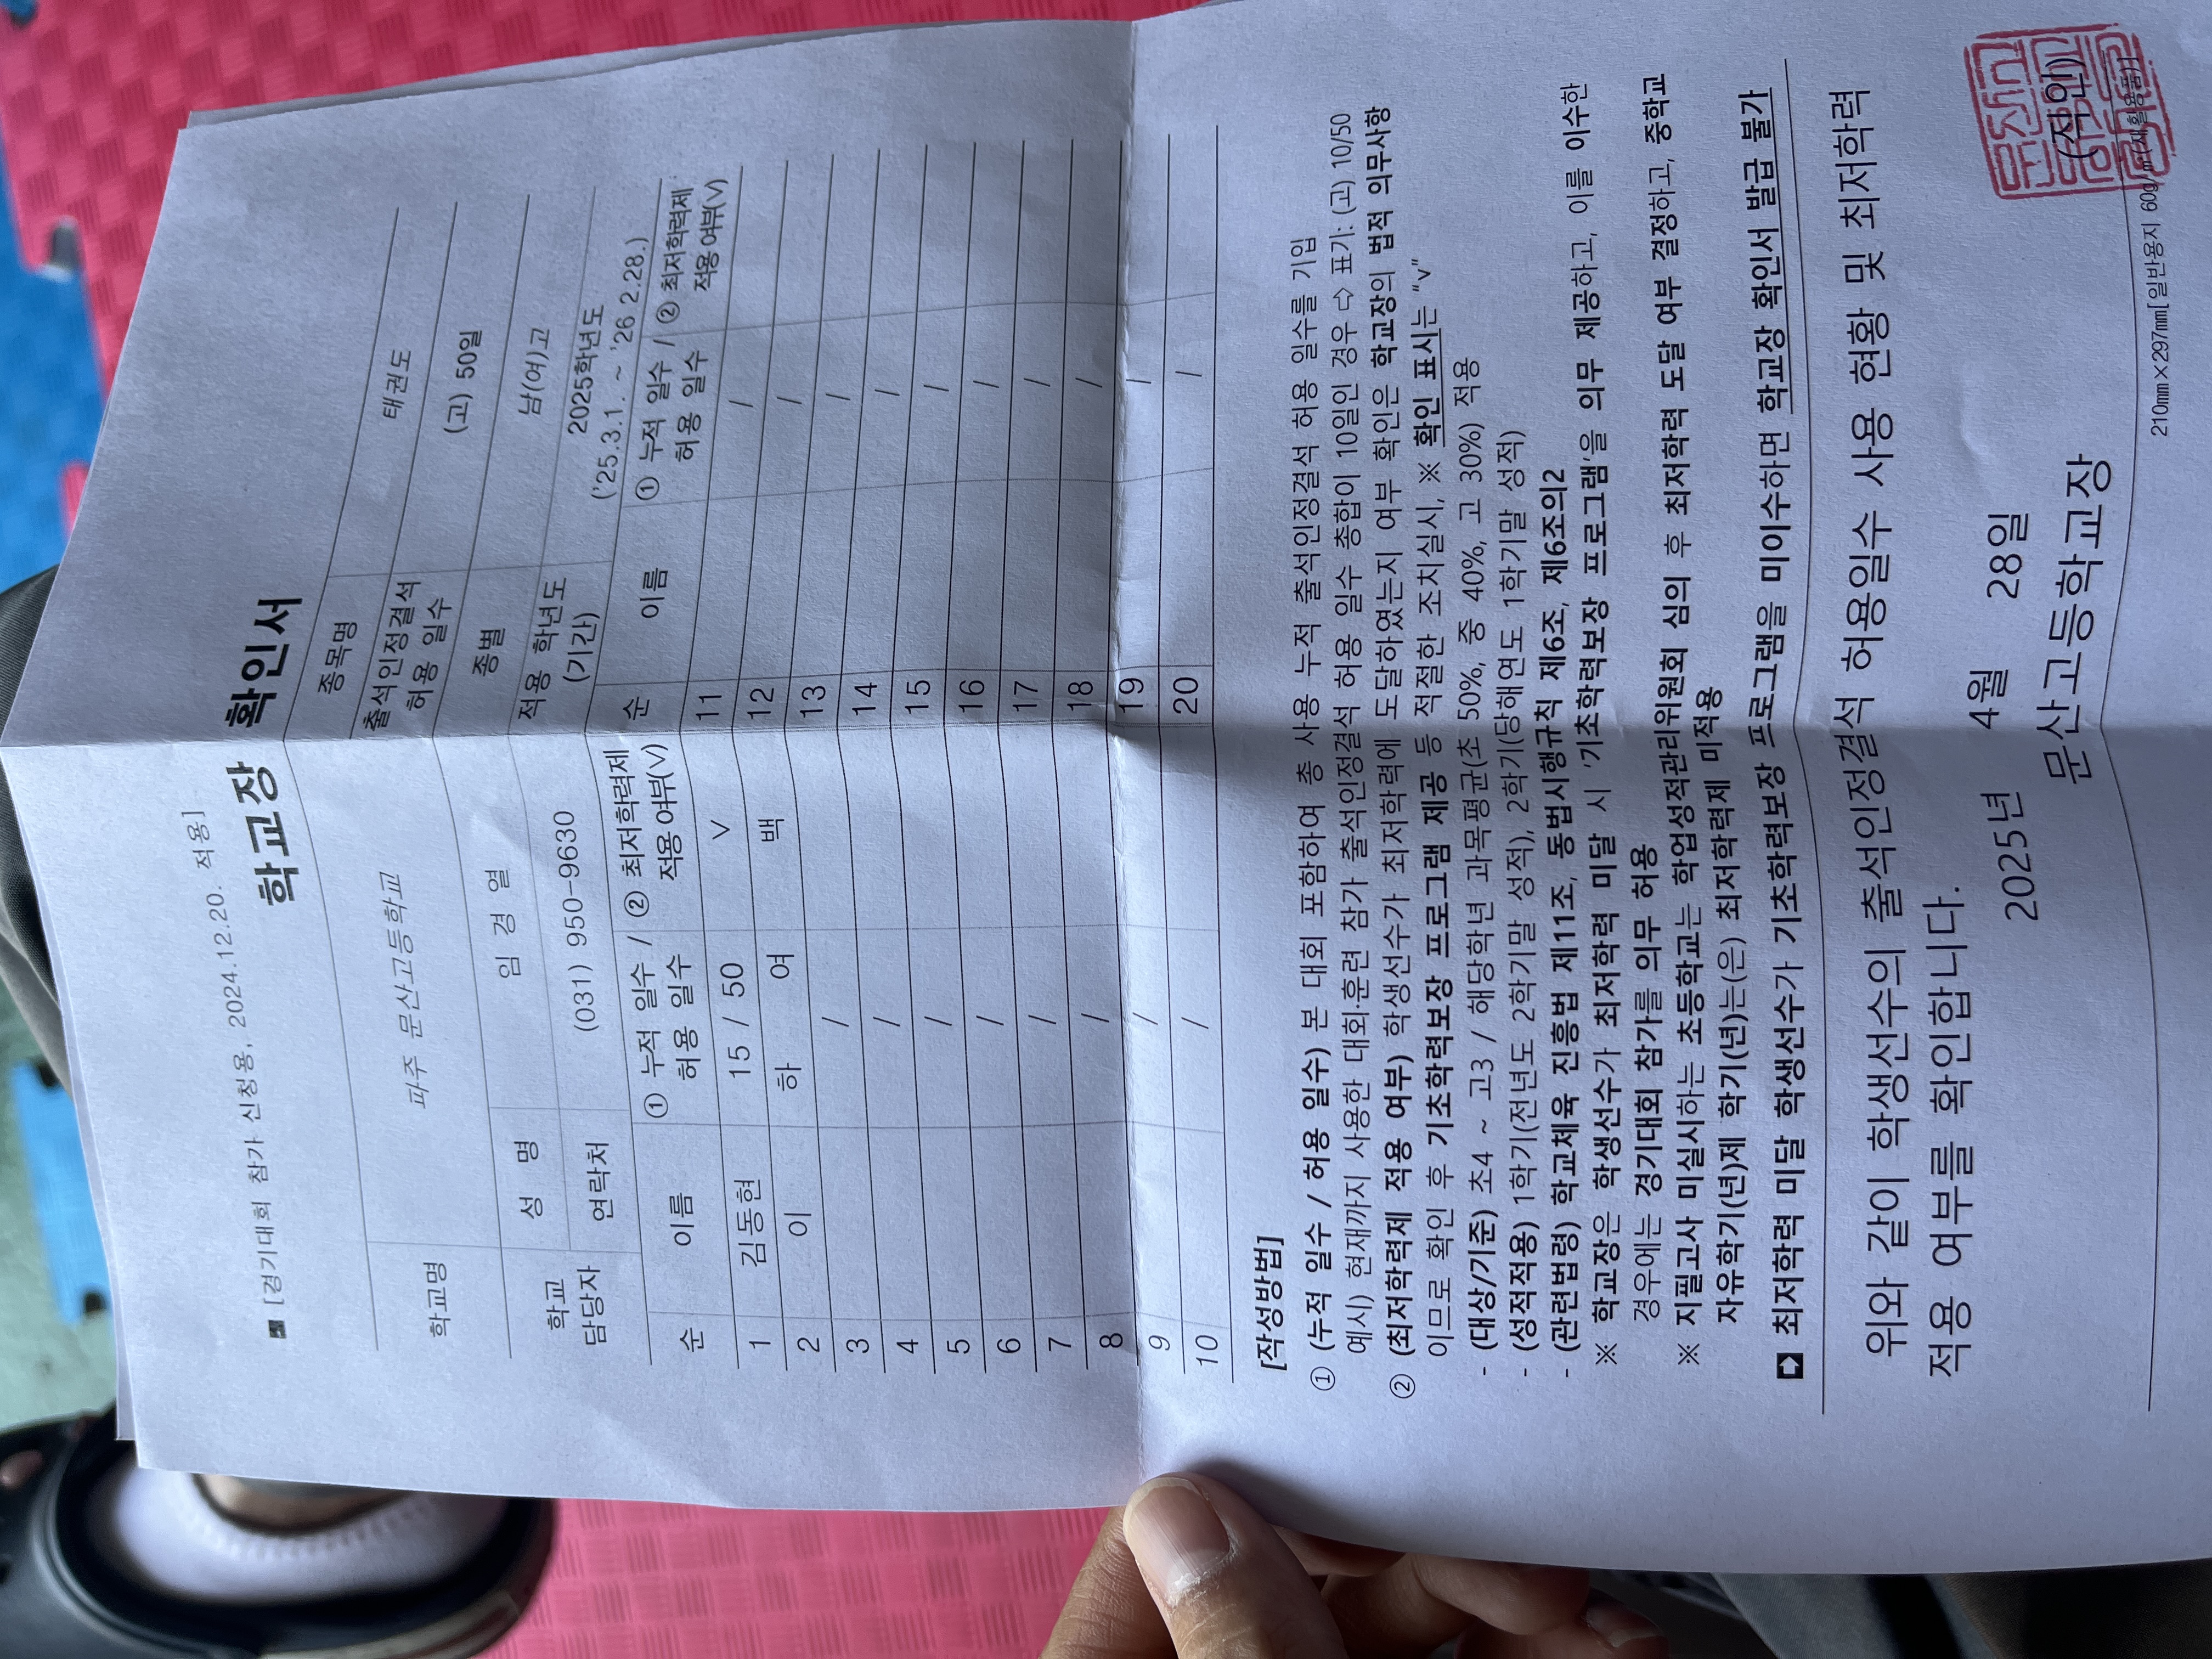 ■ [경기대회 참가 신청용, 2024.12.20. 적용]
학교장 확인서
학교명 파주 문산고등학교 종목명 태권도
출석인정결석 허용 일수 (고) 50일
학교 담당자 성 명 임 경 열 종별 남(여)고
연락처 (031) 950-9630 적용 학년도 (기간) 2025학년도 ('25.3.1. ~ '26 2.28.)
순 이름 ① 누적 일수 / 허용 일수 ② 최저학력제 적용 여부(v) 순 이름 ① 누적 일수 / 허용 일수 ② 최저학력제 적용 여부(v)
1 김동현 15 / 50 V 11 /
2 이 하 여 백 12 /
3 / 13 /
4 / 14 /
5 / 15 /
6 / 16 /
7 / 17 /
8 / 18 /
9 / 19 /
10 / 20 /
[작성방법]
① (누적 일수 / 허용 일수) 본 대회 포함하여 총 사용 누적 출석인정결석 허용 일수를 기입
예시) 현재까지 사용한 대회·훈련 참가 출석인정결석 허용 일수 총합이 10일인 경우 ⇨ 표기: (고) 10/50
② (최저학력제 적용 여부) 학생선수가 최저학력에 도달하였는지 여부 확인은 학교장의 법적 의무사항
이므로 확인 후 기초학력보장 프로그램 제공 등 적절한 조치실시, ※ 확인 표시는 "v"
- (대상/기준) 초4 ~ 고3 / 해당학년 과목평균(초 50%, 중 40%, 고 30%) 적용
- (성적적용) 1학기(전년도 2학기말 성적), 2학기(당해연도 1학기말 성적)
- (관련법령) 학교체육 진흥법 제11조, 동법시행규칙 제6조, 제6조의2
※ 학교장은 학생선수가 최저학력 미달 시 '기초학력보장 프로그램'을 의무 제공하고, 이를 이수한
경우에는 경기대회 참가를 의무 허용
※ 지필고사 미실시하는 초등학교는 학업성적관리위원회 심의 후 최저학력 도달 여부 결정하고, 중학교
자유학기(년)제 학기(년)는(은) 최저학력제 미적용
➡ 최저학력 미달 학생선수가 기초학력보장 프로그램을 미이수하면 학교장 확인서 발급 불가
위와 같이 학생선수의 출석인정결석 허용일수 사용 현황 및 최저학력
적용 여부를 확인합니다.
2025년 4월 28일
문산고등학교장 (직인)
210㎜×297㎜[일반용지 60g/㎡(재활용품)]